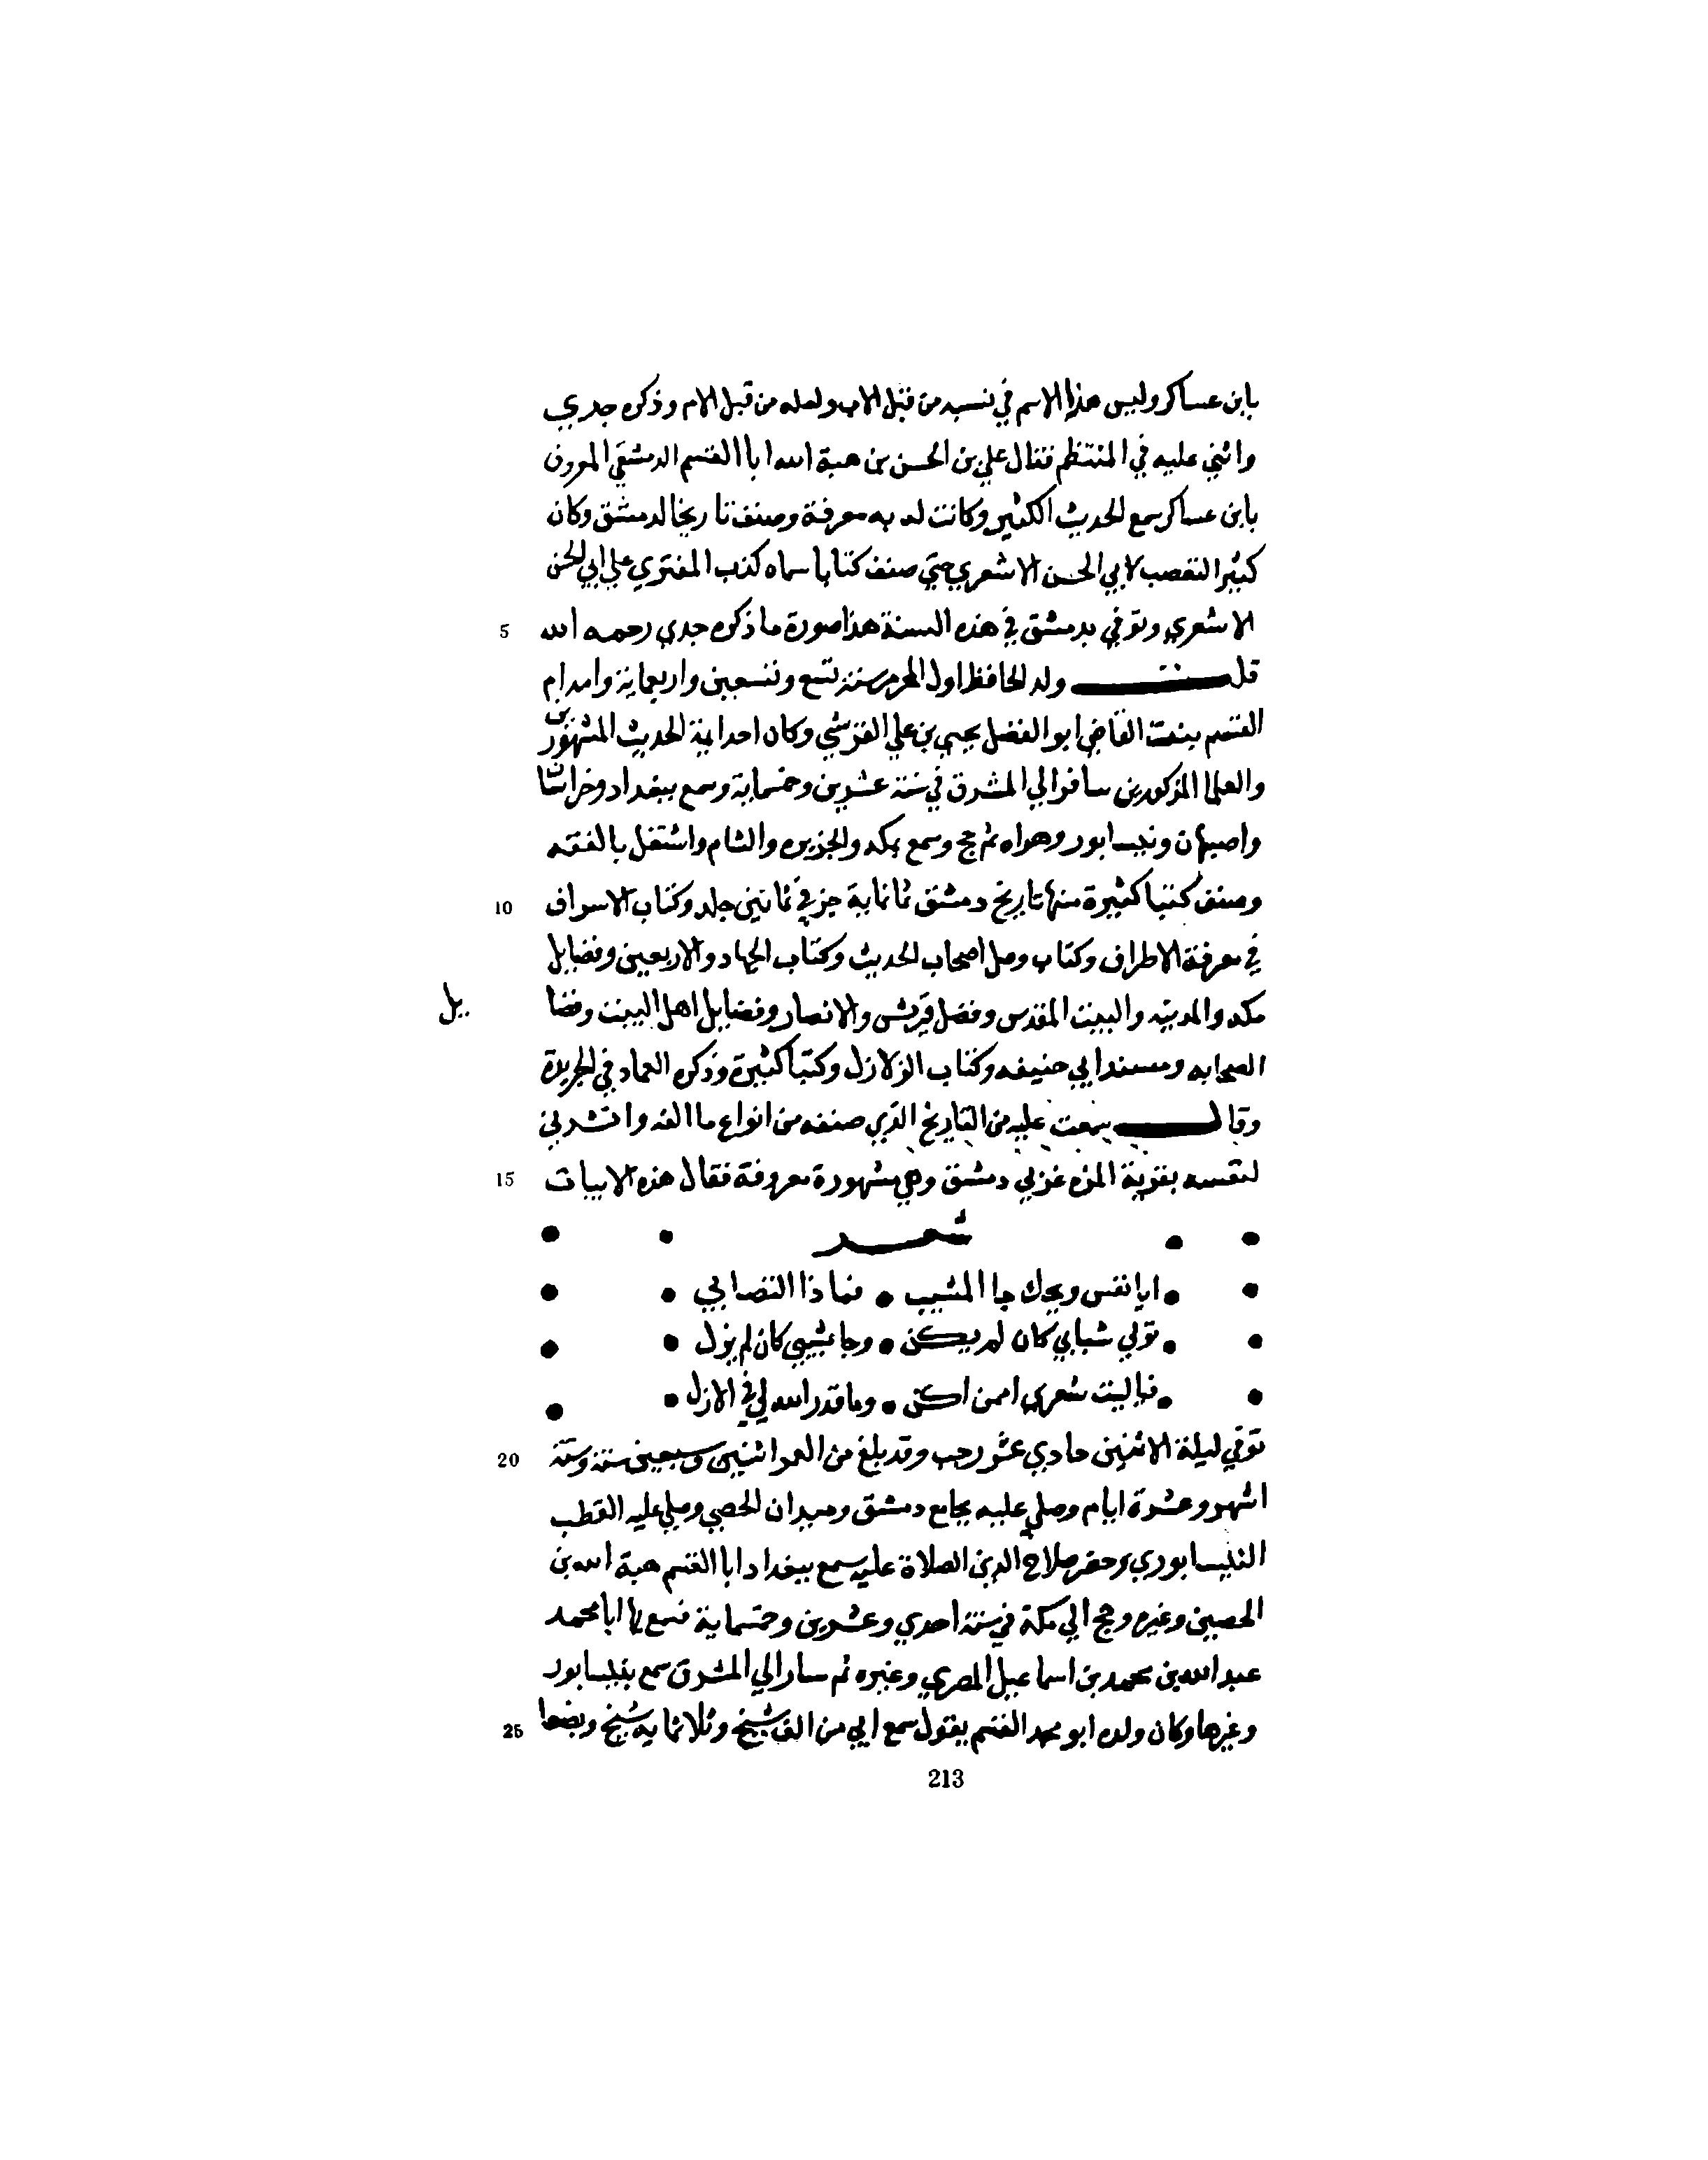 بابن عساكر وليس هذا الاسم في نسبه من قبل الاب ولعله من قبل الام وذكره جدي
واثني عليه في المنتظم فقال علي بن الحسن بن هبة الله ابا القسم الدمشقي المعروف
بابن عساكر سمع الحديث الكثير وكانت له به معرفة وصنف تاريخا لدمشق وكان
كثير التعصب لابي الحسن الاشعري حتي صنف كتابا سماه كذب المفتري علي ابي الحسن
الاشعري وتوفي بدمشق في هذه السنة هذا صورة ما ذكره جدي رحمه الله 5
قلت ولد الحافظ اول المحرم سنة تسع وتسعين واربعماية وامه ام
القسم بنت القاضي ابو الفضل يحيي بن علي القرشي وكان احد ايمة الحديث المشهورين
والعلما المذكورين سافر الي المشرق في سنة عشرين وخمسماية وسمع ببغداد وخراسان
واصبهان ونيسابور وهراه ثم حج وسمع بمكه والجزيره والشام واشتغل بالفقه
وصنف كتبا كثيرة منها تاريخ دمشق ثمانماية جز في ثمانين جلد وكتاب الاسراف 10
في معرفة الاطراف وكتاب وصل اصحاب الحديث وكتاب الجهاد والاربعين وفضايل
مكه والمدينه والبيت المقدس وفضل قريش والانصار وفضايل اهل البيت وفضا يل
الصحابه ومسند ابي حنيفه وكتاب الزلازل وكتبا كثيرة وذكره العماد في الجريدة
وقال سمعت عليه من التاريخ الذي صنفه من انواع ما الفه وانشدني
لنفسه بقرية المزه غربي دمشق وهي مشهورة معروفة فقال هذه الابيات 15
شعر
ايا نفس ويحك جا المشيب فماذا التصابي
تولي شبابي كان لم يكن وجا مشيبي كان لم يزل
فيا ليت شعري اممن اكن وما قدر الله لي في الازل
توفي ليلة الاثنين حادي عشر رجب وقد بلغ من العمر اثنين وسبعين سنة وستة 20
اشهر وعشرة ايام وصلي عليه بجامع دمشق وميدان الحصي وصلي عليه القطب
النيسابوري وحضر صلاح الدين الصلاة عليه سمع ببغداد ابا القسم هبة الله بن
الحصين وغيره وحج الي مكة في سنة احدي وعشرين وخمسماية فسمع بها ابا محمد
عبد الله بن محمد بن اسماعيل المصري وغيره ثم سار الي المشرق سمع بنيسابور
وغيرها وكان ولده ابو محمد القسم يقول سمع ابي من الف شيخ وثلاثماية شيخ وبضعا 25
213